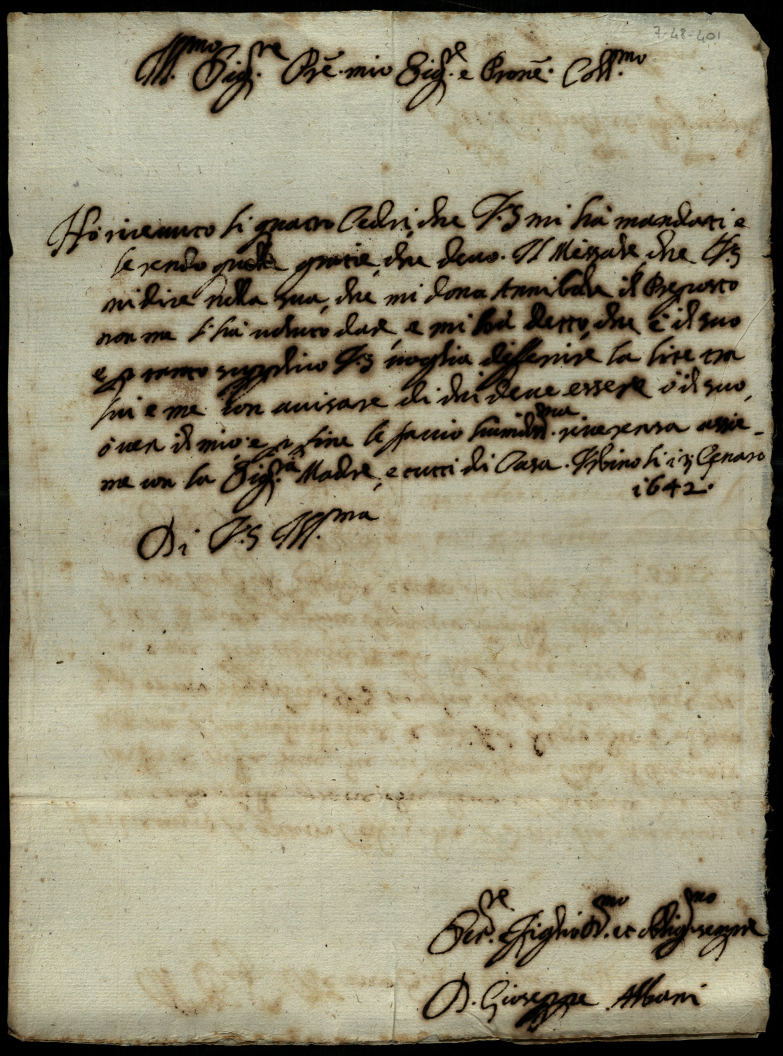 7-48-401
Ill.mo Sig.re Prē. mio Sig.re e Pronē. Coll.mo
Hò riceuuto li quatro Cedri, che V.S mi hà mandati e
le rendo quelle gratie, che deuo. Il Messale, che V.S
mi dice nella sua, che mi dona Annibale il Preposto
non me l'hà uoluto dare e mi hà detto, che è il suo
e p tanto supplico V.S uoglia diffenire la lite tra
lui e me con auisare di chi deue essere ò il suo,
ò uer il mio e p fine le faccio humiliss.ma riuerenza assie-
me con la Sig.ra Madre, e tutti di Casa. Vrbino li 13 Genaro
1642.
Di V.S Ill.ma
Ser.re Figlio et oblig.mo sempre
D. Giuseppe Albani